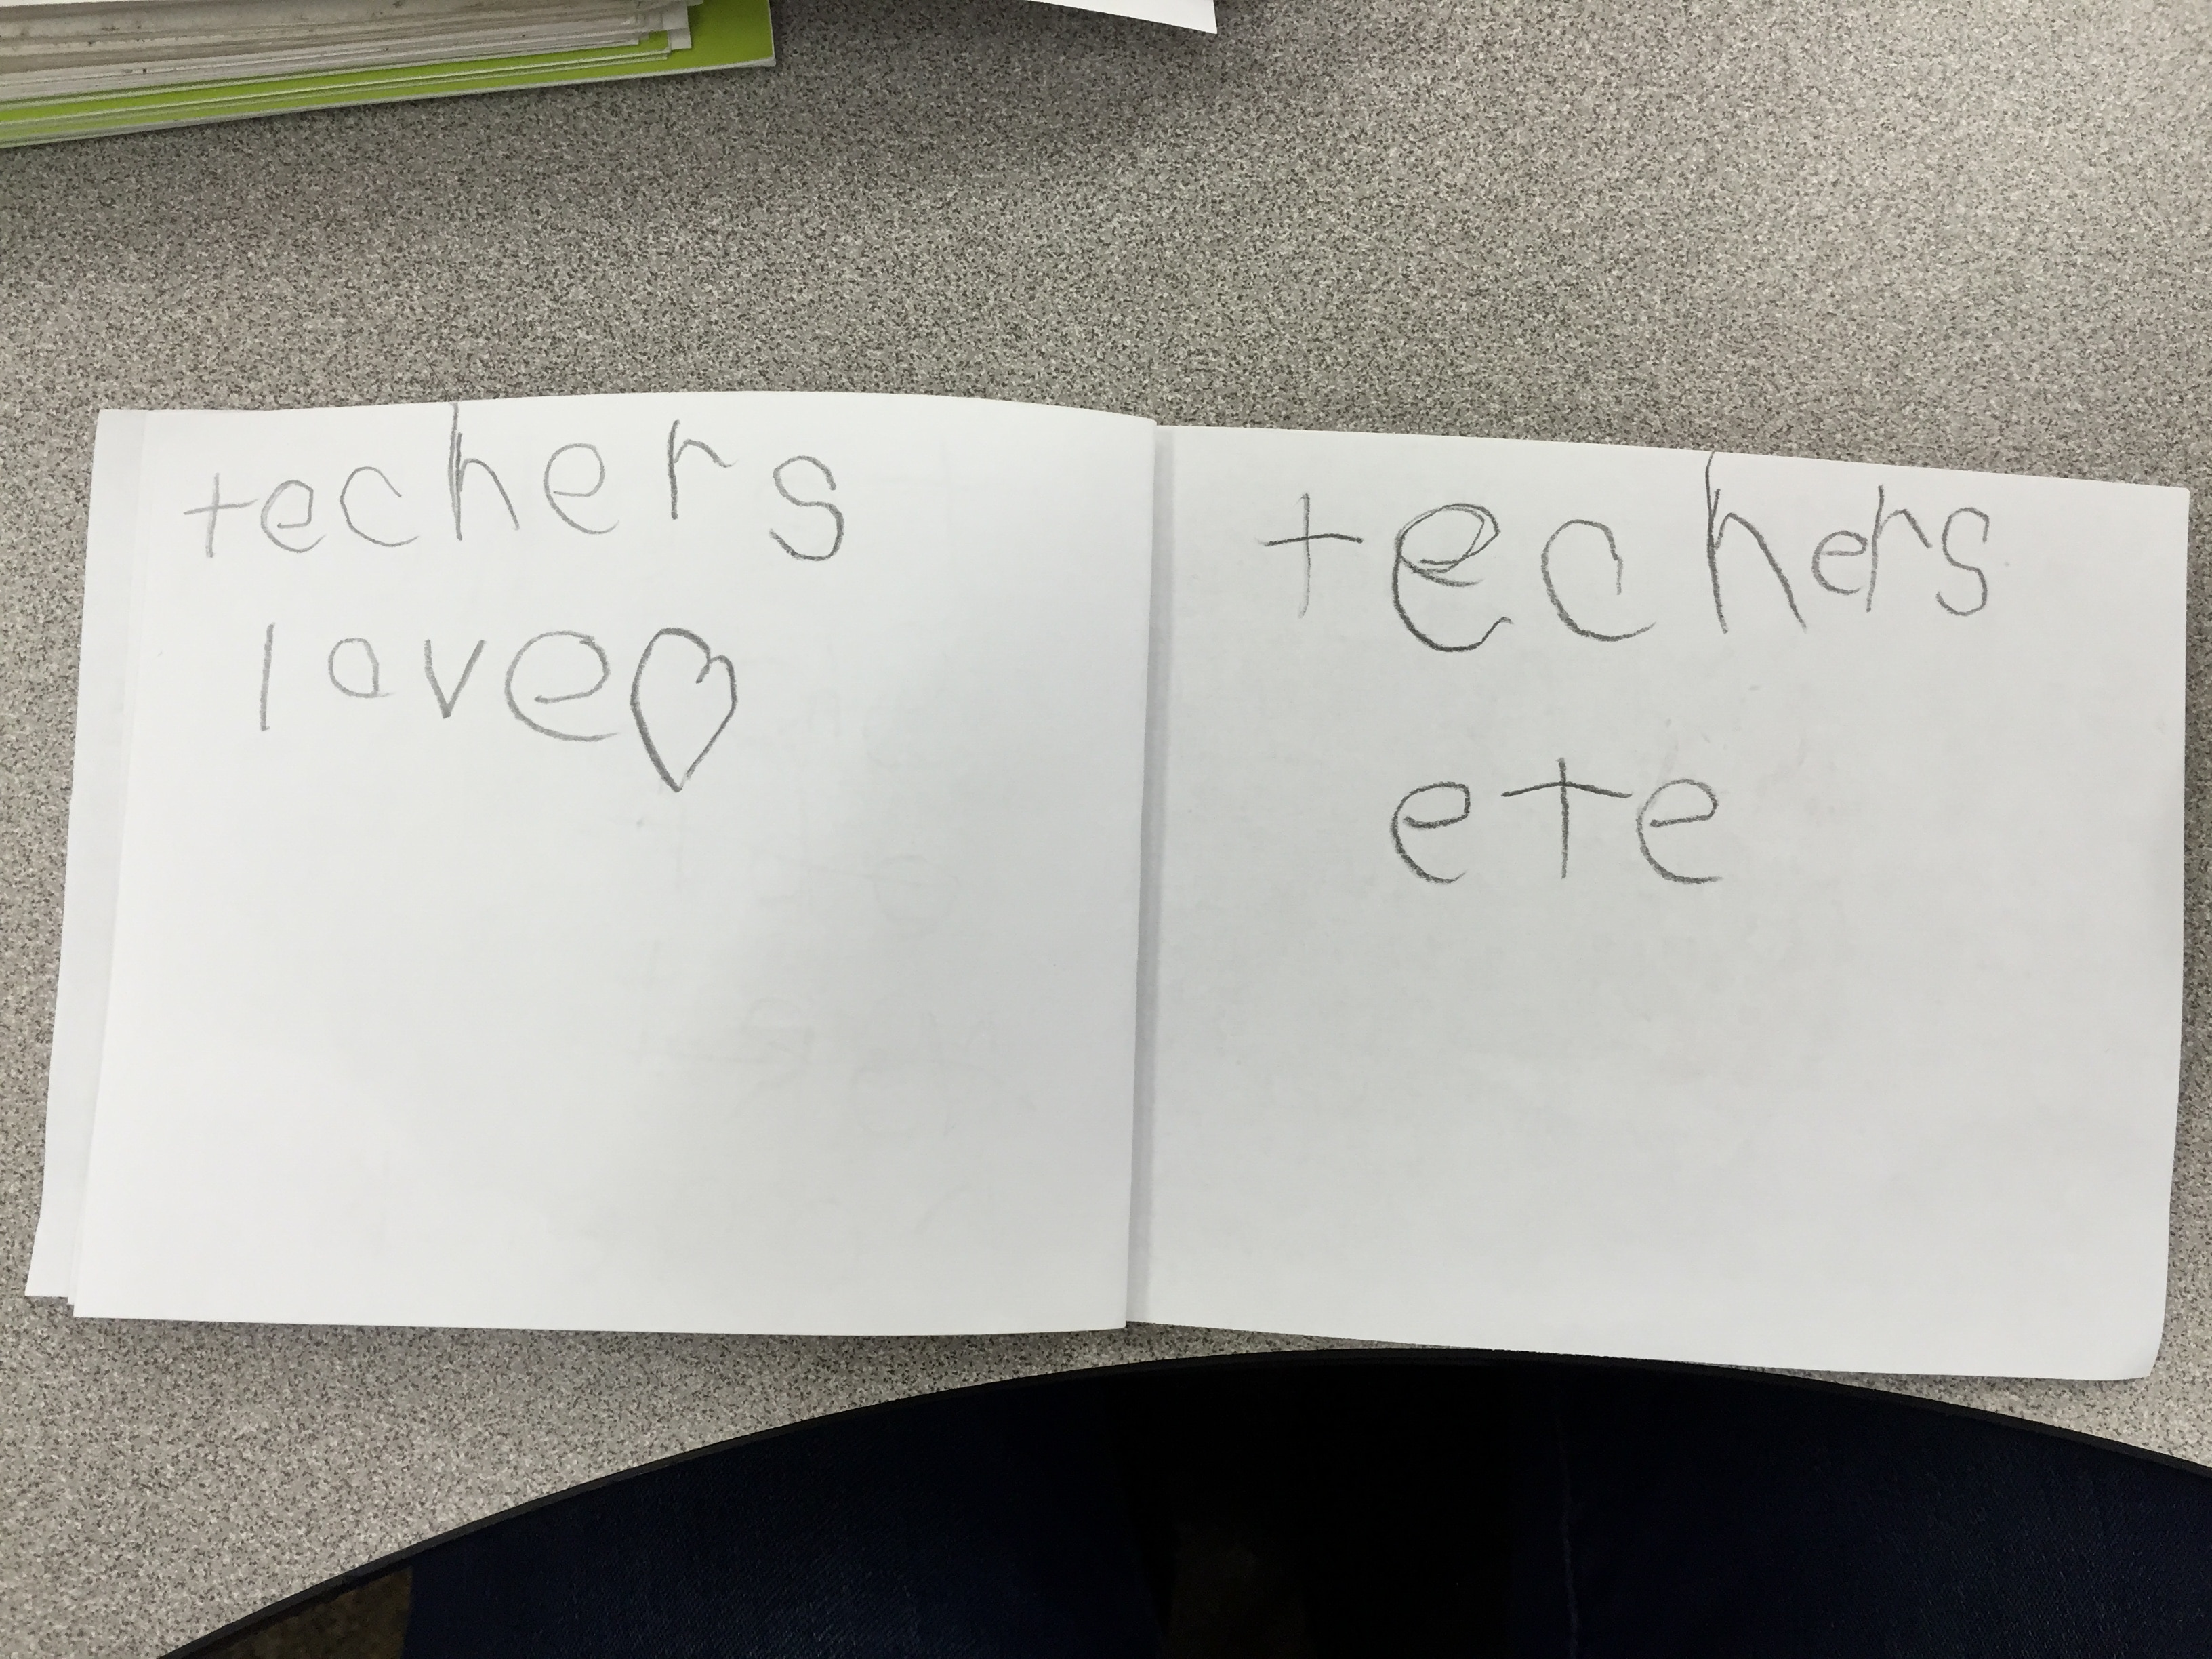 techers
love♡
techers
ete